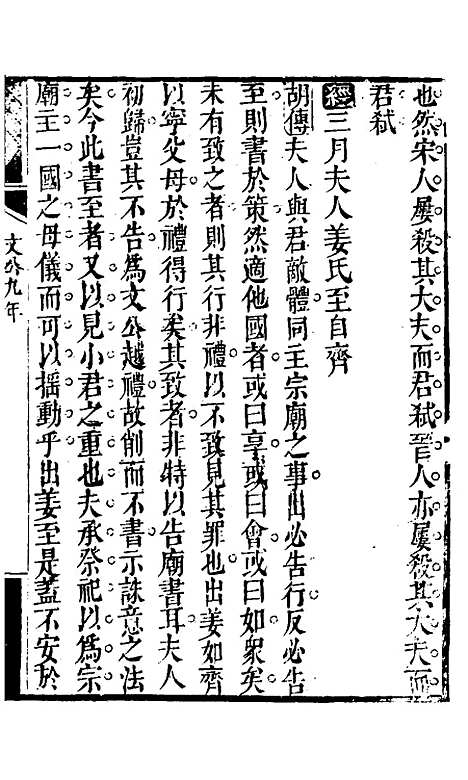 也然宋人屢殺其大夫而君弒晉人亦屢殺其大夫而
君弒
經三月夫人姜氏至自齊
胡傳夫人與君敵體同主宗廟之事出必告行反必告
至則書於策然適他國者或曰享或曰會或曰如衆矣
未有致之者則其行非禮以不致見其罪也出姜如齊
以寧父母於禮得行矣其致者非特以告廟書耳夫人
初歸豈其不告爲文公越禮故削而不書示誅意之法
矣今此書至者又以見小君之重也夫承祭祀以爲宗
廟主一國之母儀而可以搖動乎出姜至是蓋不安於
文公九年